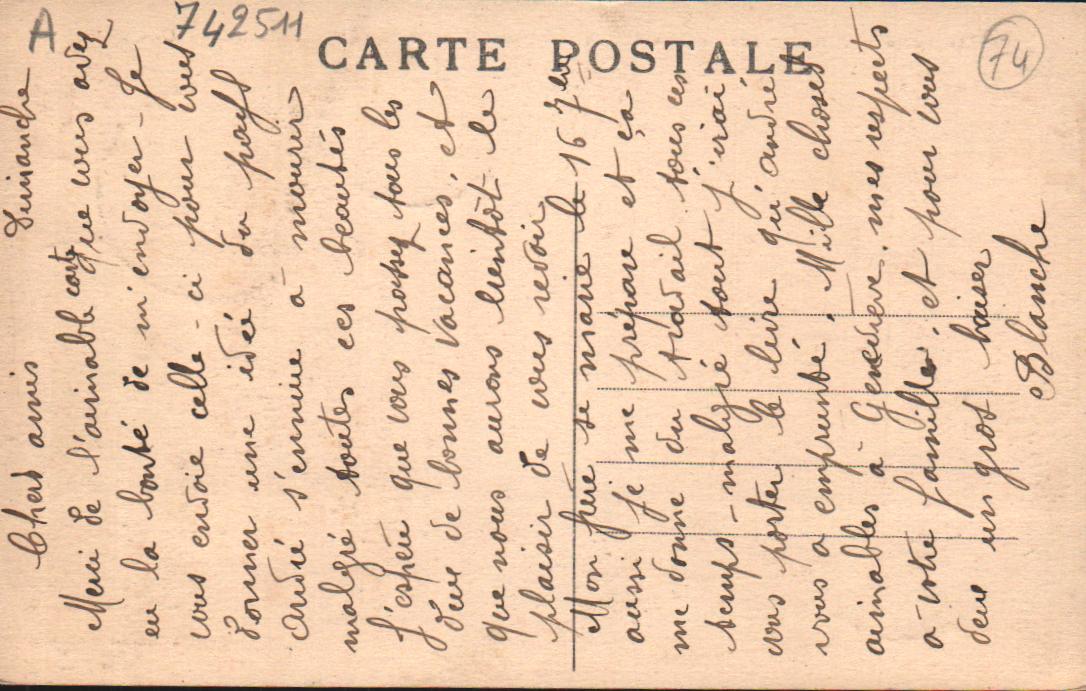 A
742511
CARTE POSTALE
74
Dimanche
Chers amis
Merci de l'aimable carte que vous avez
eu la bonté de m'envoyer - Je
vous envoie celle-ci pour vous
donner une idée du pays
André s'ennuie à mourir
malgré toutes ces beautés
J'espère que vous passez tous les
deux de bonnes vacances, et
que nous aurons bientôt le
plaisir de vous revoir
Mon frère se marie le 16 7bre
aussi je me prépare et ça
me donne du travail tous ces
temps - malgré tout j'irai
vous porter le livre qu'André
vous a emprunté. Mille choses
aimables à Geneviève. mes respects
à votre famille. et pour vous
deux un gros baiser
Blanche